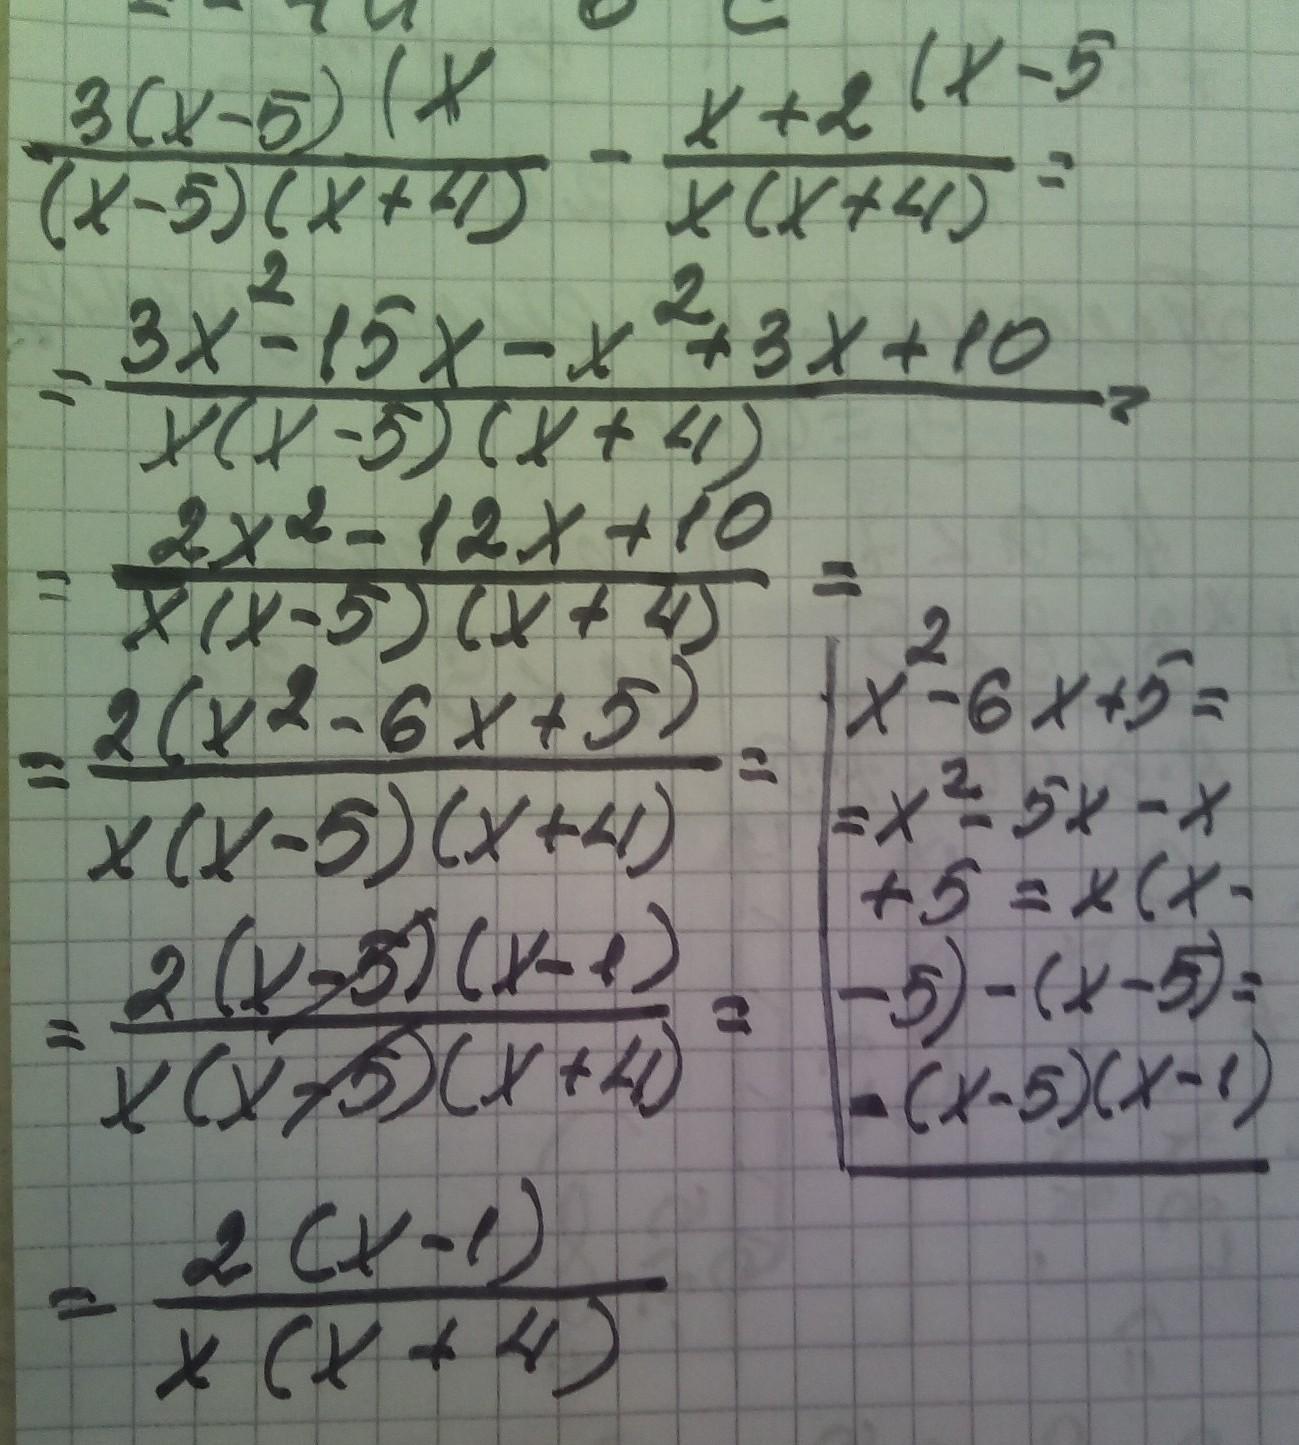 3(x-5) (x / (x-5)(x+4) - x+2 (x-5 / x(x+4) =
= 3x²-15x-x²+3x+10 / x(x-5)(x+4) =
= 2x²-12x+10 / x(x-5)(x+4) =
= 2(x²-6x+5) / x(x-5)(x+4) =
= 2(x-5)(x-1) / x(x-5)(x+4) =
= 2(x-1) / x(x+4)
x²-6x+5=
=x²-5x-x
+5=x(x-
-5)-(x-5)=
-(x-5)(x-1)